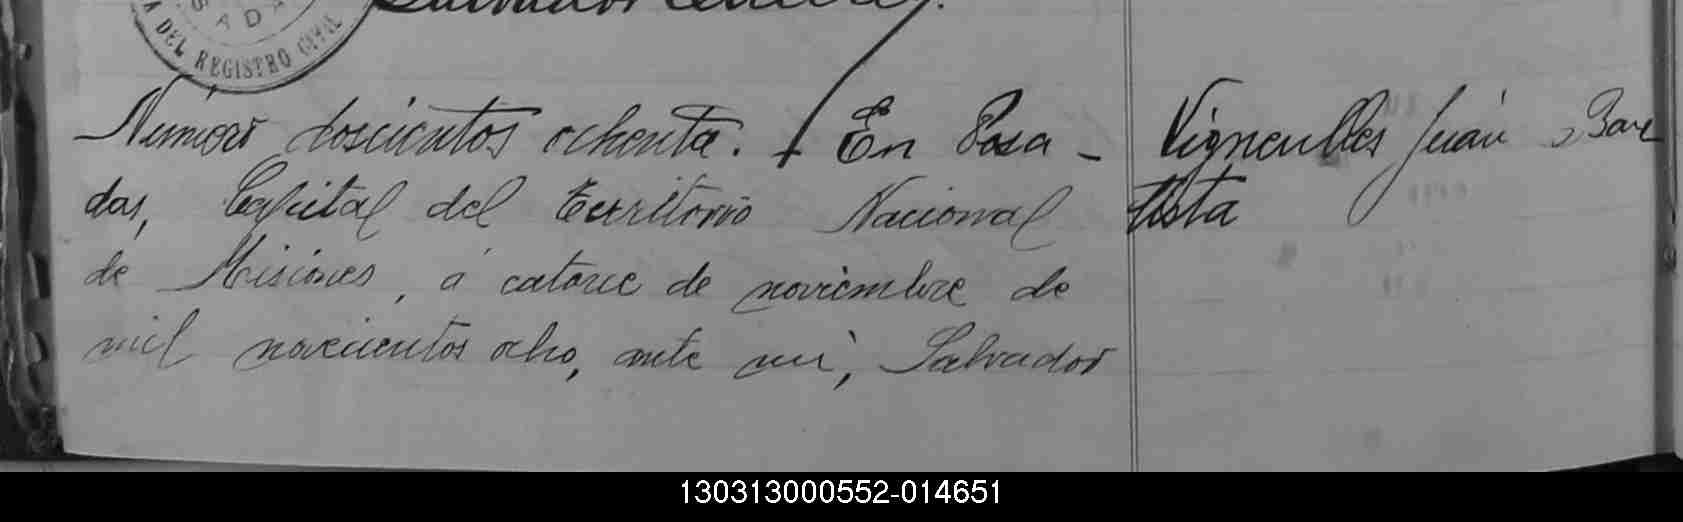 SADA
A DEL REGISTRO CIVIL
Salvador
Número doscientos ochenta. En Posa-
das, Capital del Territorio Nacional
de Misiones, á catorce de noviembre de
mil novecientos ocho, ante mí, Salvador
Vigneulles Juan Bau
tista
130313000552-014651